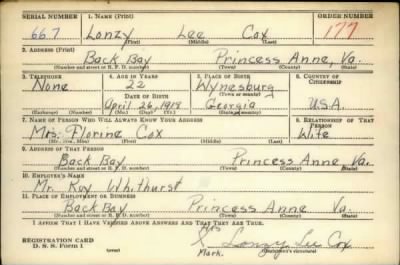 SERIAL NUMBER 1. NAME (Print) ORDER NUMBER
667 Lonzy Lee Cox 177
(First) (Middle) (Last)
2. ADDRESS (Print)
Back Bay Princess Anne, Va.
(Number and street or R. F. D. number) (Town) (County) (State)
3. TELEPHONE 4. AGE IN YEARS 5. PLACE OF BIRTH 6. COUNTRY OF CITIZENSHIP
None 22 Wynesburg
DATE OF BIRTH (Town or county)
April 26, 1918 Georgia USA
(Exchange) (Number) (Mo.) (Day) (Yr.) (State or country)
7. NAME OF PERSON WHO WILL ALWAYS KNOW YOUR ADDRESS 8. RELATIONSHIP OF THAT PERSON
Mrs. Florine Cox Wife
(Mr., Mrs., Miss) (First) (Middle) (Last)
9. ADDRESS OF THAT PERSON
Back Bay Princess Anne Va.
(Number and street or R. F. D. number) (Town) (County) (State)
10. EMPLOYER'S NAME
Mr. Roy Whithurst
11. PLACE OF EMPLOYMENT OR BUSINESS
Back Bay Princess Anne Va.
(Number and street or R. F. D. number) (Town) (County) (State)
I AFFIRM THAT I HAVE VERIFIED ABOVE ANSWERS AND THAT THEY ARE TRUE.
REGISTRATION CARD His
D. S. S. Form 1 X Lonzy Lee Cox
(over) Mark. (Registrant's signature)